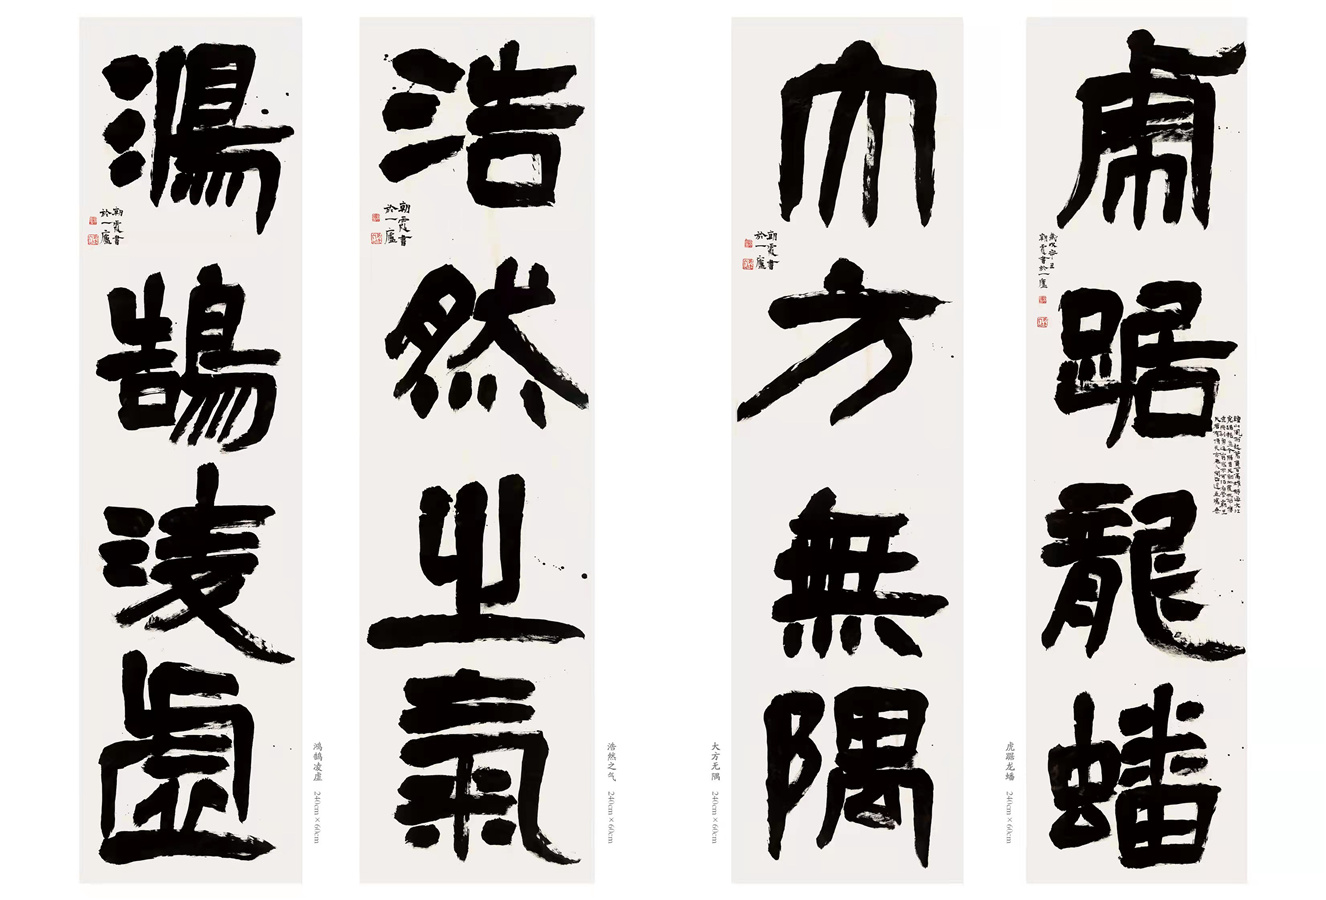 虎踞龍蟠
朝霞書於一廬
虎踞龙蟠 240cm×60cm
大方無隅
朝霞書
於一廬
大方无隅 240cm×60cm
浩然之氣
朝霞書
於一廬
浩然之气 240cm×60cm
鴻鵠凌虛
朝霞書
於一廬
鸿鹄凌虚 240cm×60cm